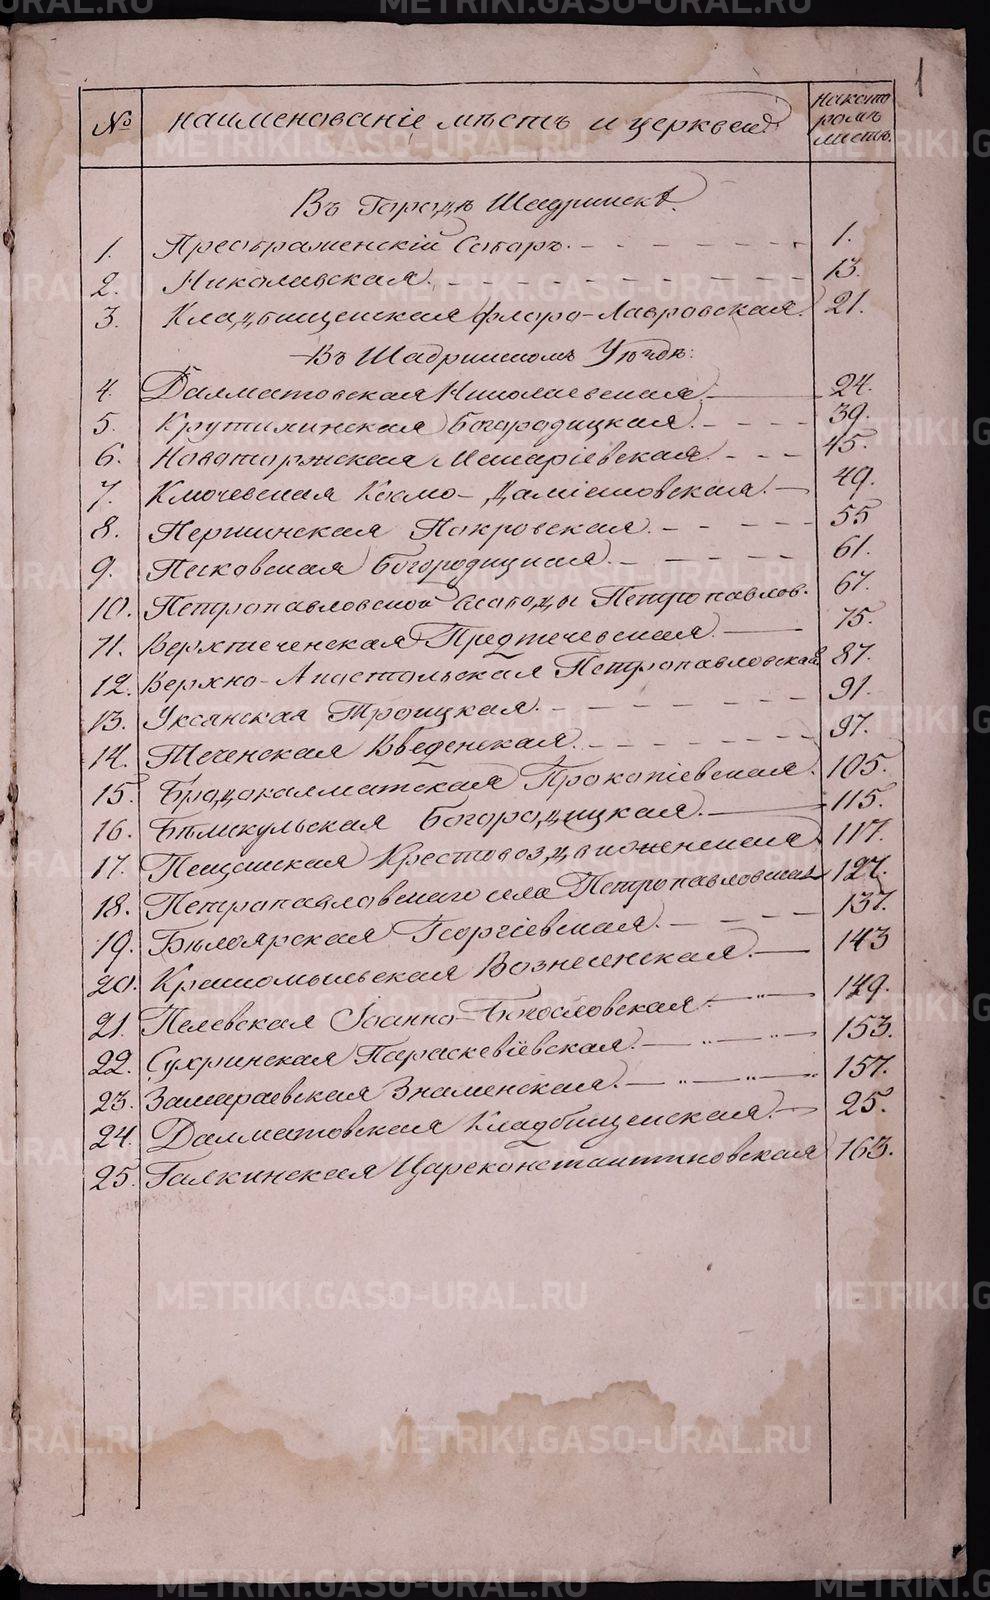 1
№ Наименованіе мѣстъ и церквей На кото
ромъ
листѣ.
Въ Городѣ Шадринскѣ.
1. Преображенскій Соборъ. 1.
2. Николаевская. 13.
3. Кладбищенская Флоро-Лавровская. 21.
Въ Шадринскомъ Уѣздѣ:
4. Далматовская Николаевская. 24.
5. Крутихинская Богородицкая. 39.
6. Новоторжская Макаріевская. 45.
7. Ключевская Космо-Даміановская. 49.
8. Першинская Покровская. 55
9. Песковская Богородицкая. 61.
10. Петропавловской слободы Петропавлов. 67.
11. Верхтеченская Предтечевская. 75.
12. Верхно-Апостольская Петропавловская 87.
13. Уксянская Троицкая. 91.
14. Теченская Введенская. 97.
15. Бродокалматская Прокопіевская. 105.
16. Бѣликульская Богородицкая. 115.
17. Пещанская Крестовоздвиженская 117.
18. Петропавловскаго села Петропавловская 127.
19. Бѣлоярская Георгіевская. 137.
20. Красномыльская Вознесенская. 143
21. Пелевская Іоанно-Богословская 149.
22. Сухринская Параскевіевская. 153.
23. Замараевская Знаменская. 157.
24. Далматовская Кладбищенская. 25.
25. Галкинская Цареконстантиновская 163.
METRIKI.GASO-URAL.RU